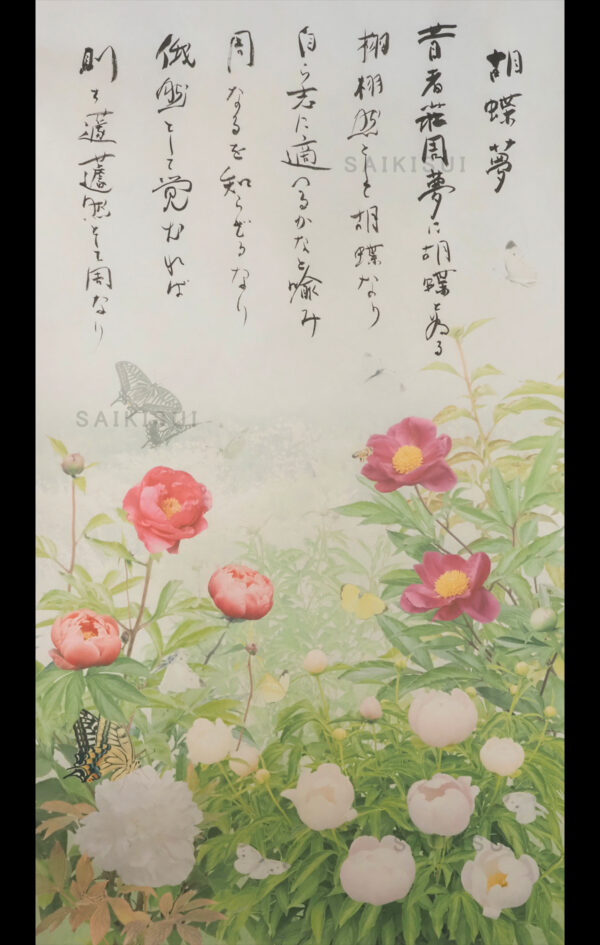 胡蝶夢
昔者荘周夢に胡蝶と為る
栩栩然として胡蝶なり
自ら志に適へるかなと喩み
周なるを知らざるなり
俄然として覚むれば
則ち蘧蘧然として周なり
SAIKISUI
SAIKISUI
SAIKISUI